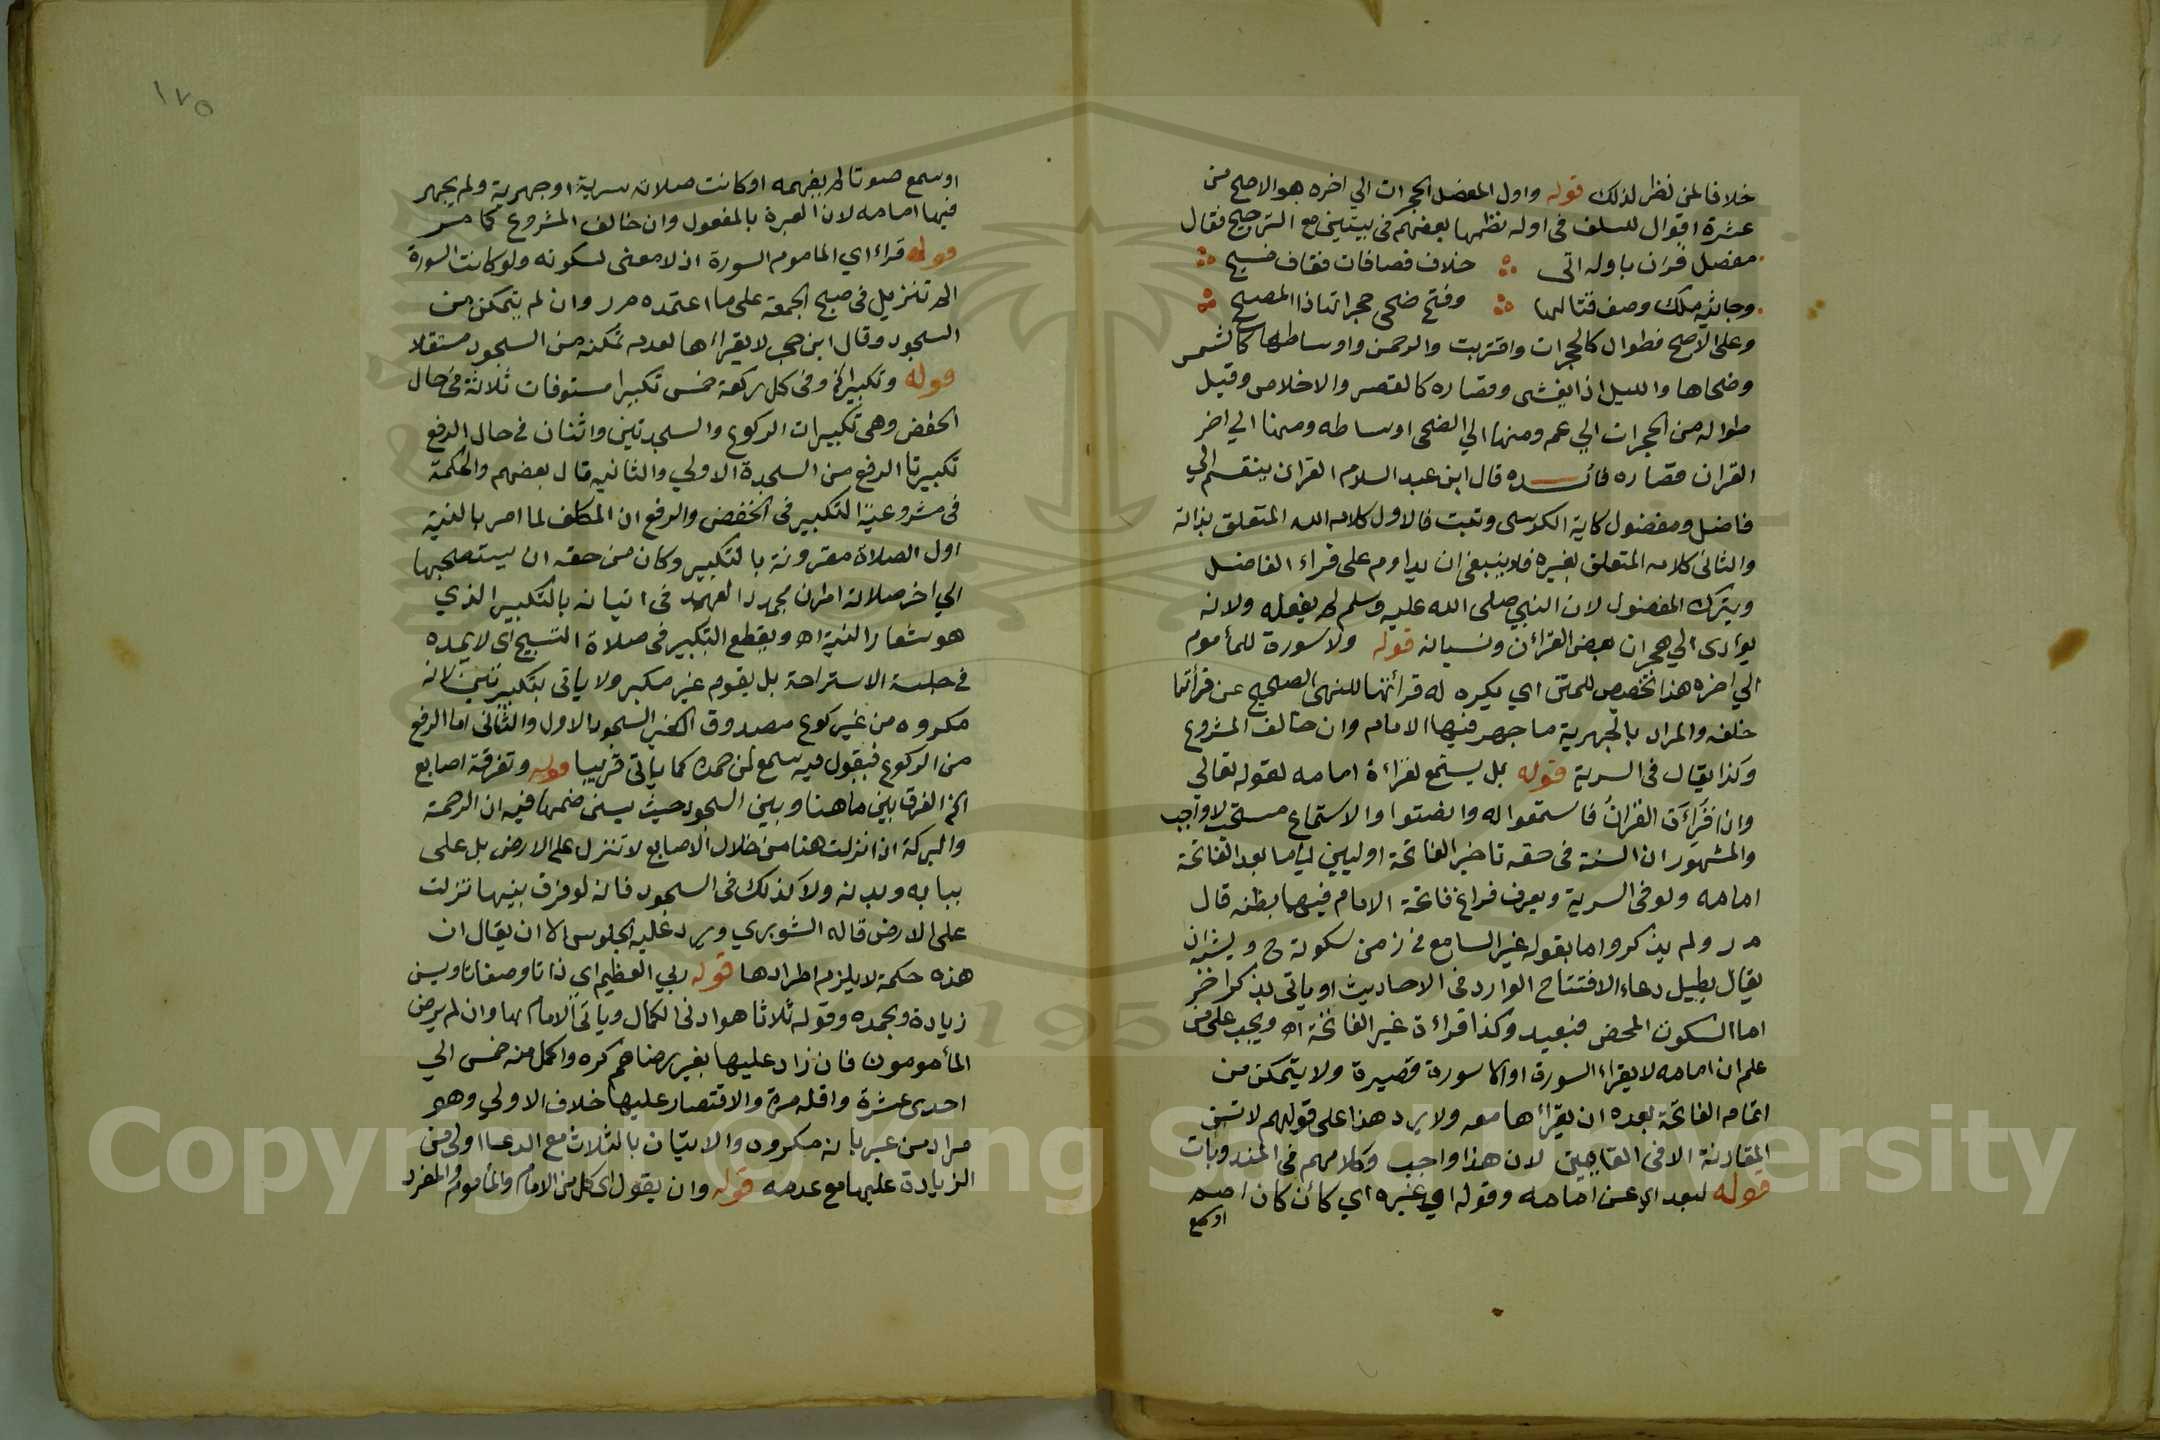 خلافا لمن نظر لذلك قوله واول المفصل الحجرات الي اخره هو الاصح من
عشرة اقوال للسلف في اوله نظمها بعضهم في بيتين مع الترجيح فقال
مفصل قران باوله اتى خلاف فصافات فقاف فسبح
وجاثية ملك وصف قتالها وفتح ضحى حجراتها ذا المصحح
وعلى الاصح فطواله كالحجرات واقتربت والرحمن واوساطه كالشمس
وضحاها والليل اذا يغشى وقصاره كالعصر والاخلاص وقيل
طواله من الحجرات الي عم ومنها الي الضحى اوساطه ومنها الي اخر
القران قصاره فائدة قال ابن عبد السلام القران ينقسم الي
فاضل ومفضول كاية الكرسى وتبت فالاول كلام الله المتعلق بذاته
والثانى كلامه المتعلق بغيره فلا ينبغي ان يداوم على قراءة الفاضل
ويترك المفضول لان النبي صلى الله عليه وسلم لم يفعله ولانه
يؤدى الي هجران بعض القرائن ونسيانه قوله ولا سورة للمأموم
الي اخره هذا تخصيص للمتن اي يكره له قرائتها للنهى الصحيح عن قرأتها
خلفه والمراد بالجهرية ما جهر فيها الامام وان خالف المشروع
وكذا يقال في السرية قوله بل يستمع لقراءة امامه لقوله تعالي
واذا قرأت القران فاستمعوا له وانصتوا والاستماع مستحب لا واجب
والمشهور ان السنة في حقه تاخير الفاتحة اوليين لما بعد الفاتحة
امامه ولو في السرية ويعرف فراغ فاتحة الامام فيها بظنه قال
م ر ولم يذكروا ما يقوله غير السامع في زمن سكوته ح ويشبه ان
يقال يطيل دعاء الافتتاح الوارد في الاحاديث او ياتى بذكر اخر
اما السكوت المحض فبعيد وكذا قراءة غير الفاتحة اه ويجب على من
علم ان امامه لا يقراء السورة او الا سورة قصيرة ولا يتمكن من
اتمام الفاتحة بعده ان يقرأها معه ولا يرد هذا على قولهم لا تسن
المقارنة الا في التامين لان هذا واجب وكلامهم في المندوبات
قوله لبعد اى عن امامه وقوله او غيره اي كأن كان اصم
او سمع
١٧٥
او سمع صوتا لم يفهمه او كانت صلاته سرية او جهرية ولم يجهر
فيها امامه لان العبرة بالمفعول وان خالف المشروع كما مر
قوله قراء اي الماموم السورة اذ لا معنى لسكوته ولو كانت السورة
الم تنزيل في صبح الجمعة على ما اعتمده م ر وان لم يتمكن من
السجود وقال ابن حجر لا يقرأها لعدم تمكنه من السجود مستقلا
قوله وتكبيراخ وفى كل ركعة خمس تكبيرا مستوفات ثلاثة في حال
الخفض وهى تكبيرات الركوع والسجدتين واثنان في حال الرفع
تكبيرتا الرفع من السجدة الاولي والثانيه قال بعضهم والحكمة
في مشروعية التكبير في الخفض والرفع ان المكلف لما امر بالنية
اول الصلاة مقرونة بالتكبير وكان من حقه ان يستصحبها
الي اخر صلاته امر ان يجدد العهد في اتيانه بالتكبير الذي
هو شعار النية اه ويقطع التكبير في صلاة التسبيح اى لا يمده
في جلسة الاستراحة بل يقوم غير مكبر ولا ياتى بتكبيرتين لانه
مكروه من غير كوع مصدوق الغير السجود الاول والثانى اما الرفع
من الركوع فيقول فيه سمع الله لمن حمده كما ياتى قريبا قوله وتفرقة اصابع
الخ الفرق بين ما هنا وبين السجود حيث يسن ضمها فيه ان الرحمة
والبركة اذا نزلت هنا من خلال الاصابع لا تنزل على الارض بل على
ثيابه وبدنه ولا كذلك في السجود فانه لو فرق بينها نزلت
على الارض قاله الشوبري ويرد عليه الجلوس الا ان يقال ان
هذه حكمة لا يلزم اطرادها قوله ربي العظيم اى ذاتا وصفاتا ويسن
زيادة وبحمده وقوله ثلاثا هو ادنى الكمال وياتى الامام بها وان لم يرض
المأمومون فان زاد عليها بغير رضاهم كره واكمل منه خمس الي
احدى عشرة واقله مرة والاقتصار عليها خلاف الاولي وهو
مراد من عبر بانه مكروه والاتيان بالثلاث مع الدعا اولى من
الزيادة عليها مع عدمه قوله وان يقول اى كل من الامام والمأموم والمنفرد
Copyright © King Saud University
195